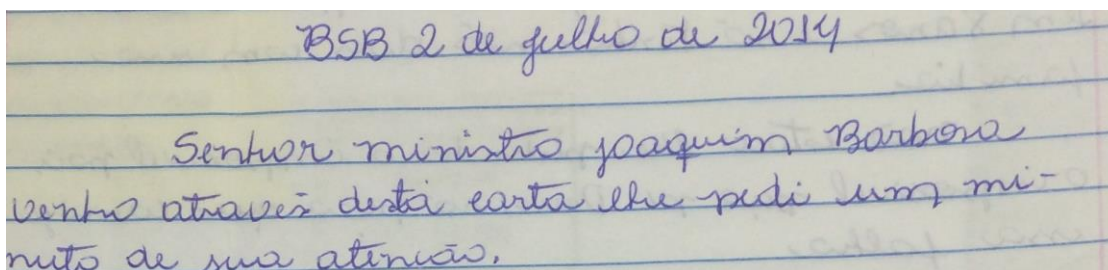 BSB 2 de julho de 2014
Senhor ministro joaquim Barbosa
venho atravez desta carta lhe pedi um mi-
nuto de sua atencão.